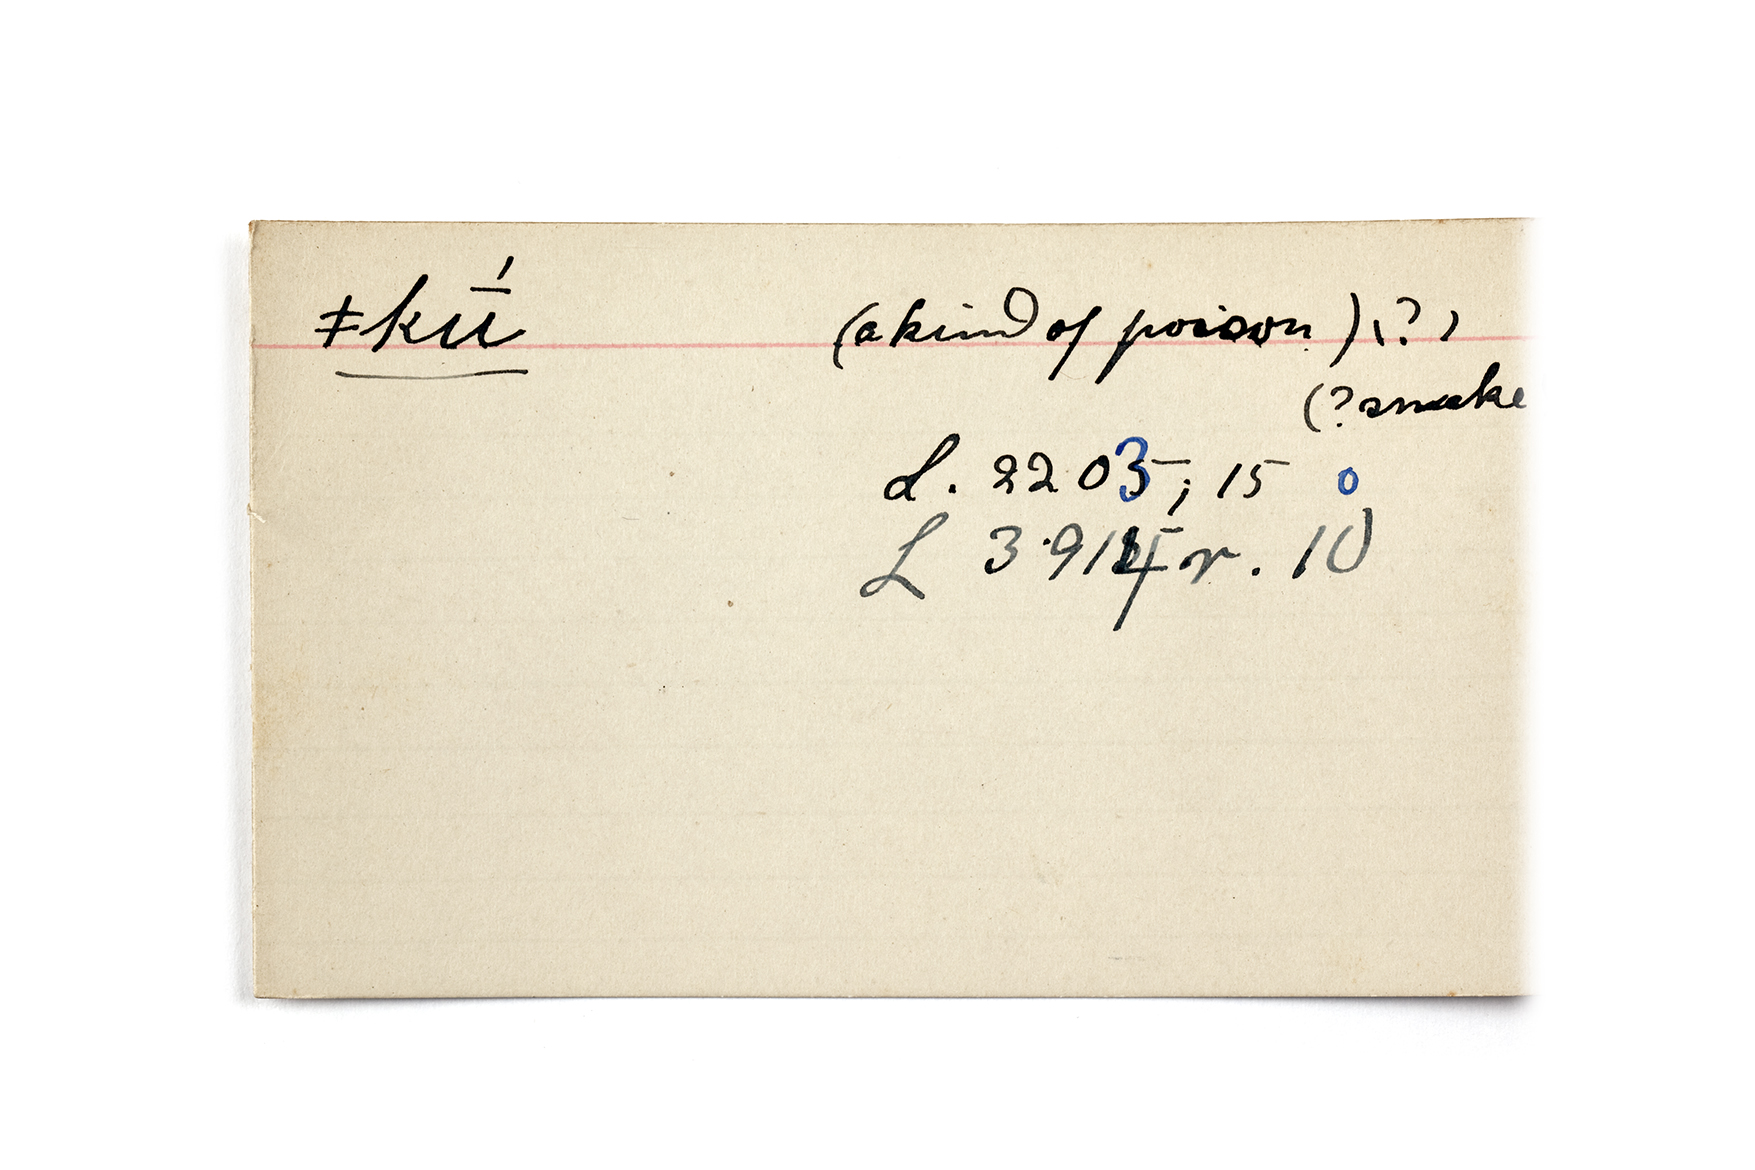 ǂkū́ (a kind of poison) (?)
(? snake
L. 2203; 15 0
L r. 10